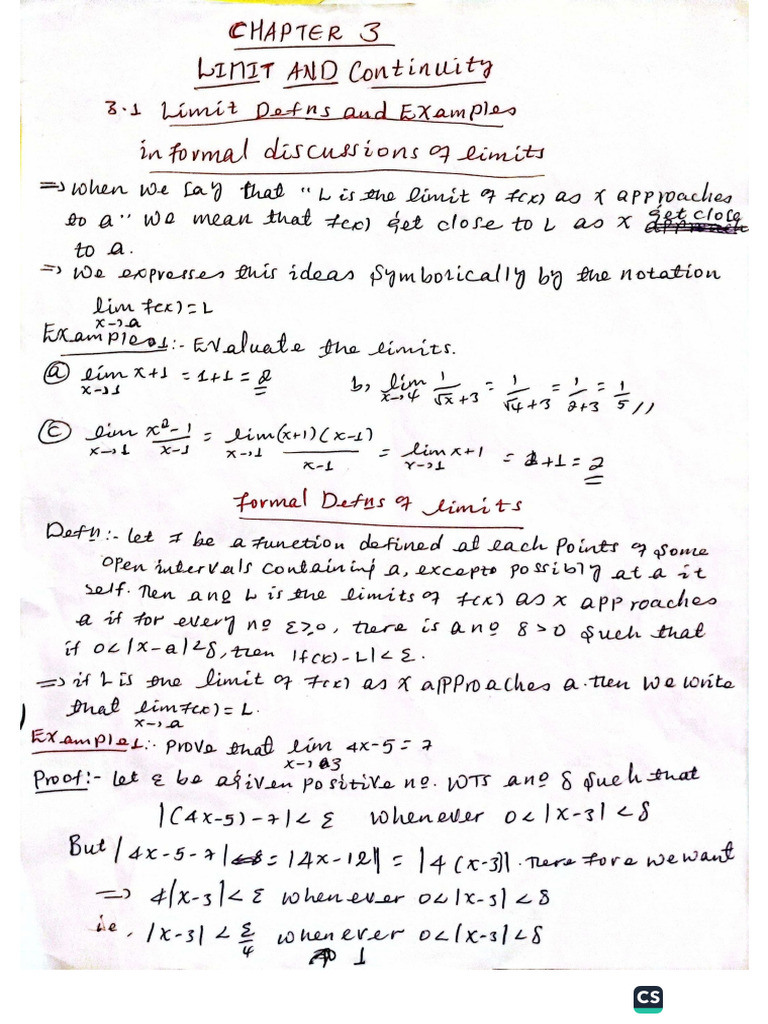 CHAPTER 3
LIMIT AND Continuity
3.1 Limit Defns and Examples
informal discussions of limits
⇒ when we say that "L is the limit of f(x) as x approaches
to a" we mean that f(x) get close to L as x get close
to a.
⇒ We expresses this ideas symborically by the notation
lim f(x) = L
x→a
Example 01:- Evaluate the limits.
ⓐ lim x+1 = 1+1 = 2 b, lim 1/(√x+3) = 1/(√4+3) = 1/(2+3) = 1/5 //
x→1 x→4
ⓒ lim (x²-1)/(x-1) = lim (x+1)(x-1)/(x-1) = lim x+1 = 1+1 = 2
x→1 x→1 x→1
formal Defns of limits
Defn:- let f be a function defined at each points of some
open intervals containing a, excepto possibly at a it
self. Then a no L is the limits of f(x) as x approaches
a if for every no ε≥0, there is a no δ>0 such that
if 0<|x-a|<δ, then |f(x)-L|<ε.
⇒ if L is the limit of f(x) as x approaches a. then we write
that lim f(x) = L.
x→a
Examples 1:- prove that lim 4x-5 = 7
x→3
Proof:- Let ε be a given positive no. WTS a no δ such that
|(4x-5)-7|<ε whenever 0<|x-3|<δ
But |4x-5-7| = |4x-12| = |4(x-3)|. There fore we want
⇒ 4|x-3|<ε whenever 0<|x-3|<δ
ie, |x-3|<ε/4 whenever 0<|x-3|<δ
1
CS